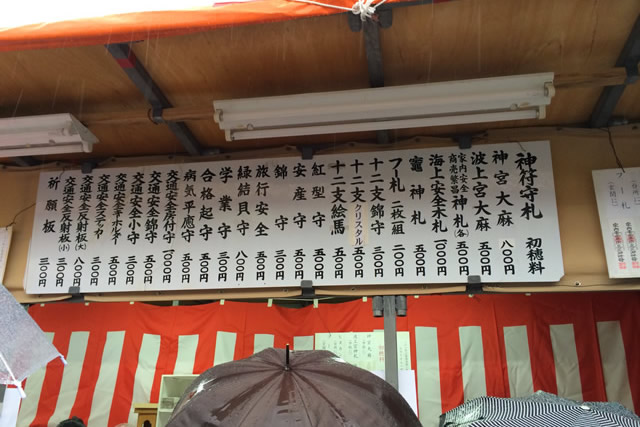 神符守札 初穂料
神宮大麻 八〇〇円
波上宮大麻 五〇〇円
家内安全
商売繁昌
神札(各) 五〇〇円
海上安全木札 五〇〇円
竈神札
フー札 二枚組 二〇〇円
十二支錦守 五〇〇円
十二支クリスタル 五〇〇円
十二支絵馬 五〇〇円
紅型守 五〇〇円
安産守 五〇〇円
錦守 五〇〇円
旅行安全 五〇〇円
縁結貝守 八〇〇円
学業守 五〇〇円
合格起守 五〇〇円
病気平癒守 五〇〇円
交通安全座付守
交通安全錦守 五〇〇円
交通安全小守 五〇〇円
交通安全キーホルダー 五〇〇円
交通安全ステッカー 三〇〇円
交通安全反射板(大) 八〇〇円
交通安全反射板(小) 七〇〇円
祈願板 三〇〇円
フー札